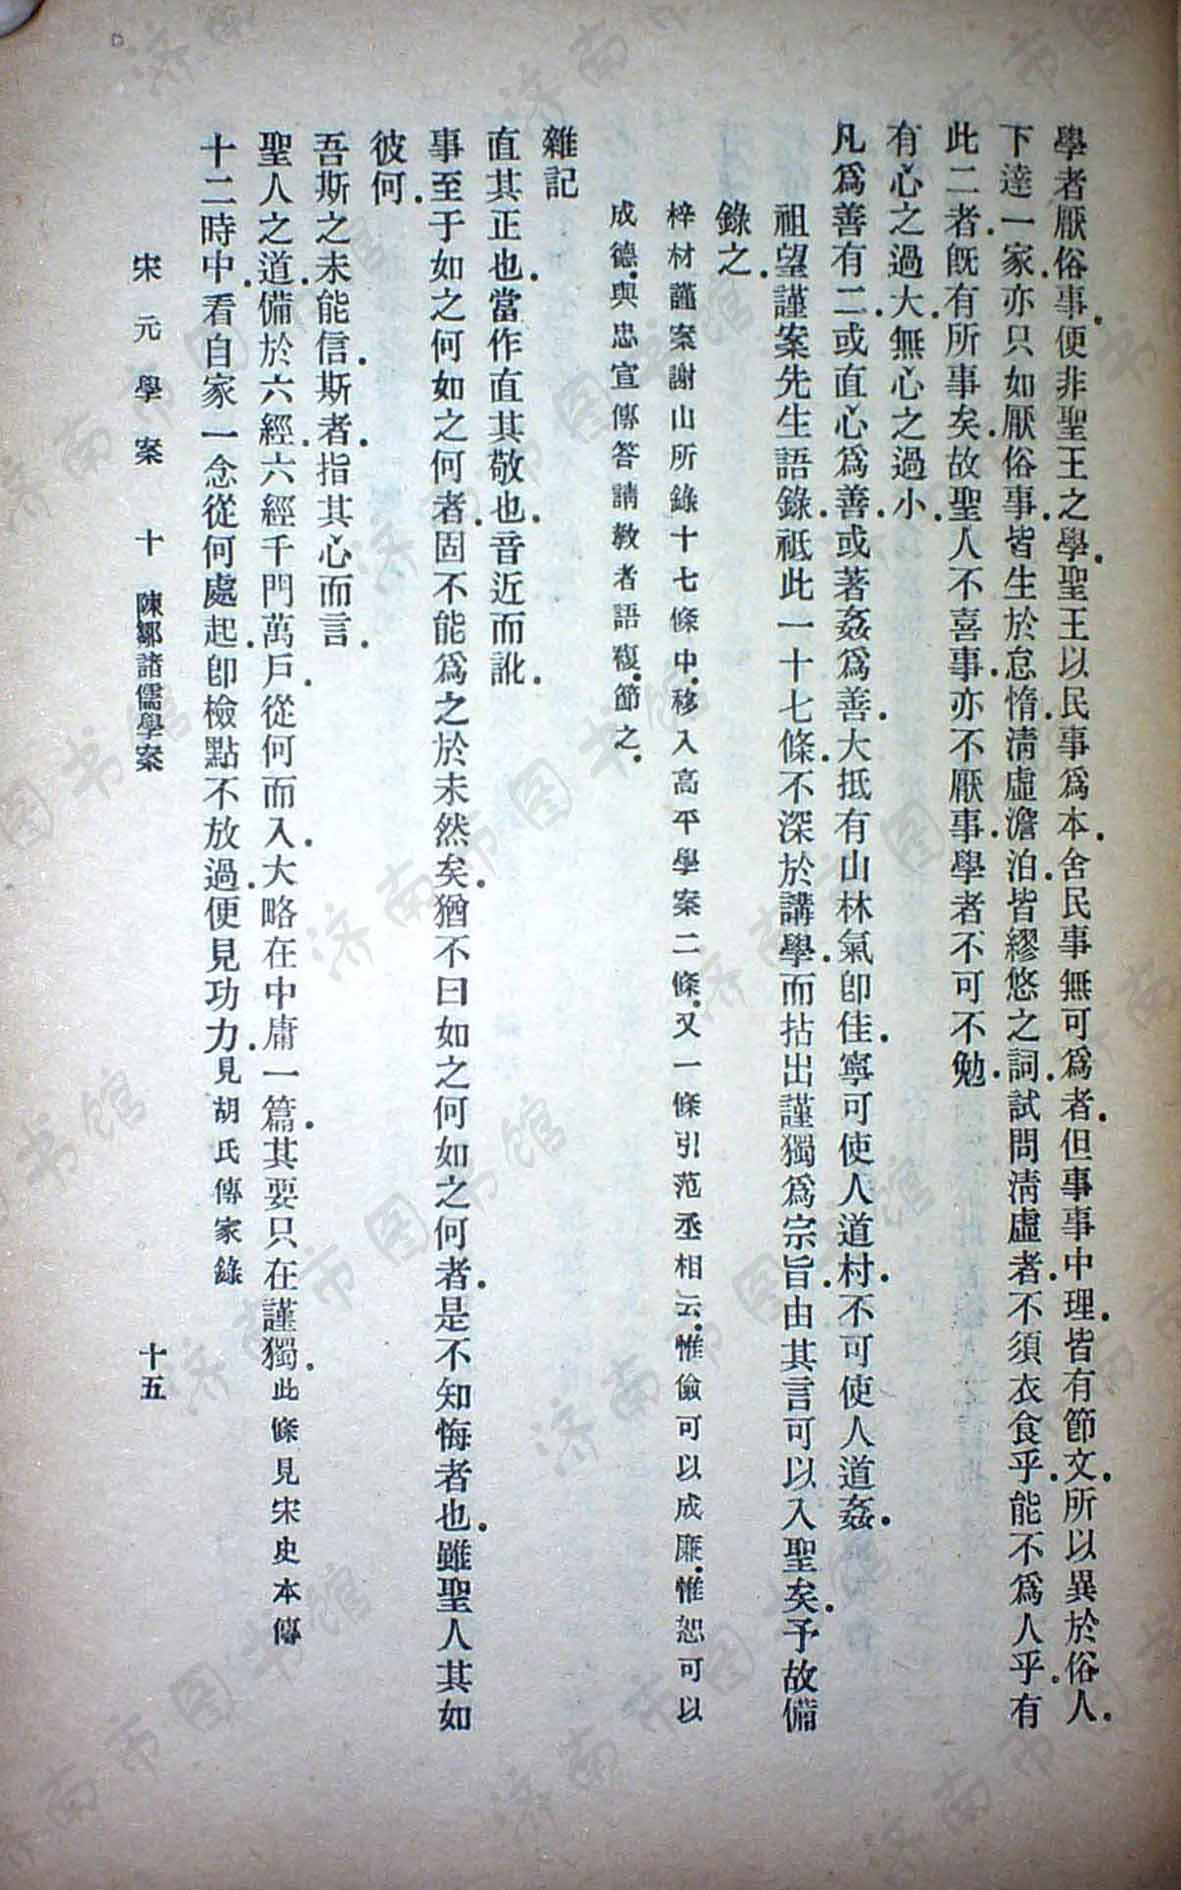 學者厭俗事.便非聖王之學.聖王以民事爲本.舍民事無可爲者.但事事中理.皆有節文.所以異於俗人.
下達一家.亦只如厭俗事.皆生於怠惰.清虛澹泊.皆繆悠之詞.試問清虛者.不須衣食乎.能不爲人乎.有
此二者.既有所事矣.故聖人不喜事.亦不厭事.學者不可不勉.
有心之過大.無心之過小.
凡爲善有二.或直心爲善.或著姦爲善.大抵有山林氣卽佳.寧可使人道村.不可使人道姦.
祖望謹案先生語錄.祇此一十七條.不深於講學.而拈出謹獨爲宗旨.由其言可以入聖矣.予故備
錄之.
梓材謹案謝山所錄十七條中.移入高平學案二條.又一條引范丞相云.惟儉可以成廉.惟恕可以
成德.與忠宣傳答請教者語複.節之.
雜記
直其正也.當作直其敬也.音近而訛.
事至于如之何如之何者.固不能爲之於未然矣.猶不曰如之何如之何者.是不知悔者也.雖聖人其如
彼何.
吾斯之未能信.斯者.指其心而言.
聖人之道.備於六經.六經千門萬戶.從何而入.大略在中庸一篇.其要只在謹獨.此條見宋史本傳
十二時中.看自家一念從何處起.卽檢點不放過.便見功力.見胡氏傳家錄
宋元學案 十 陳鄒諸儒學案 十五
济南市图书馆